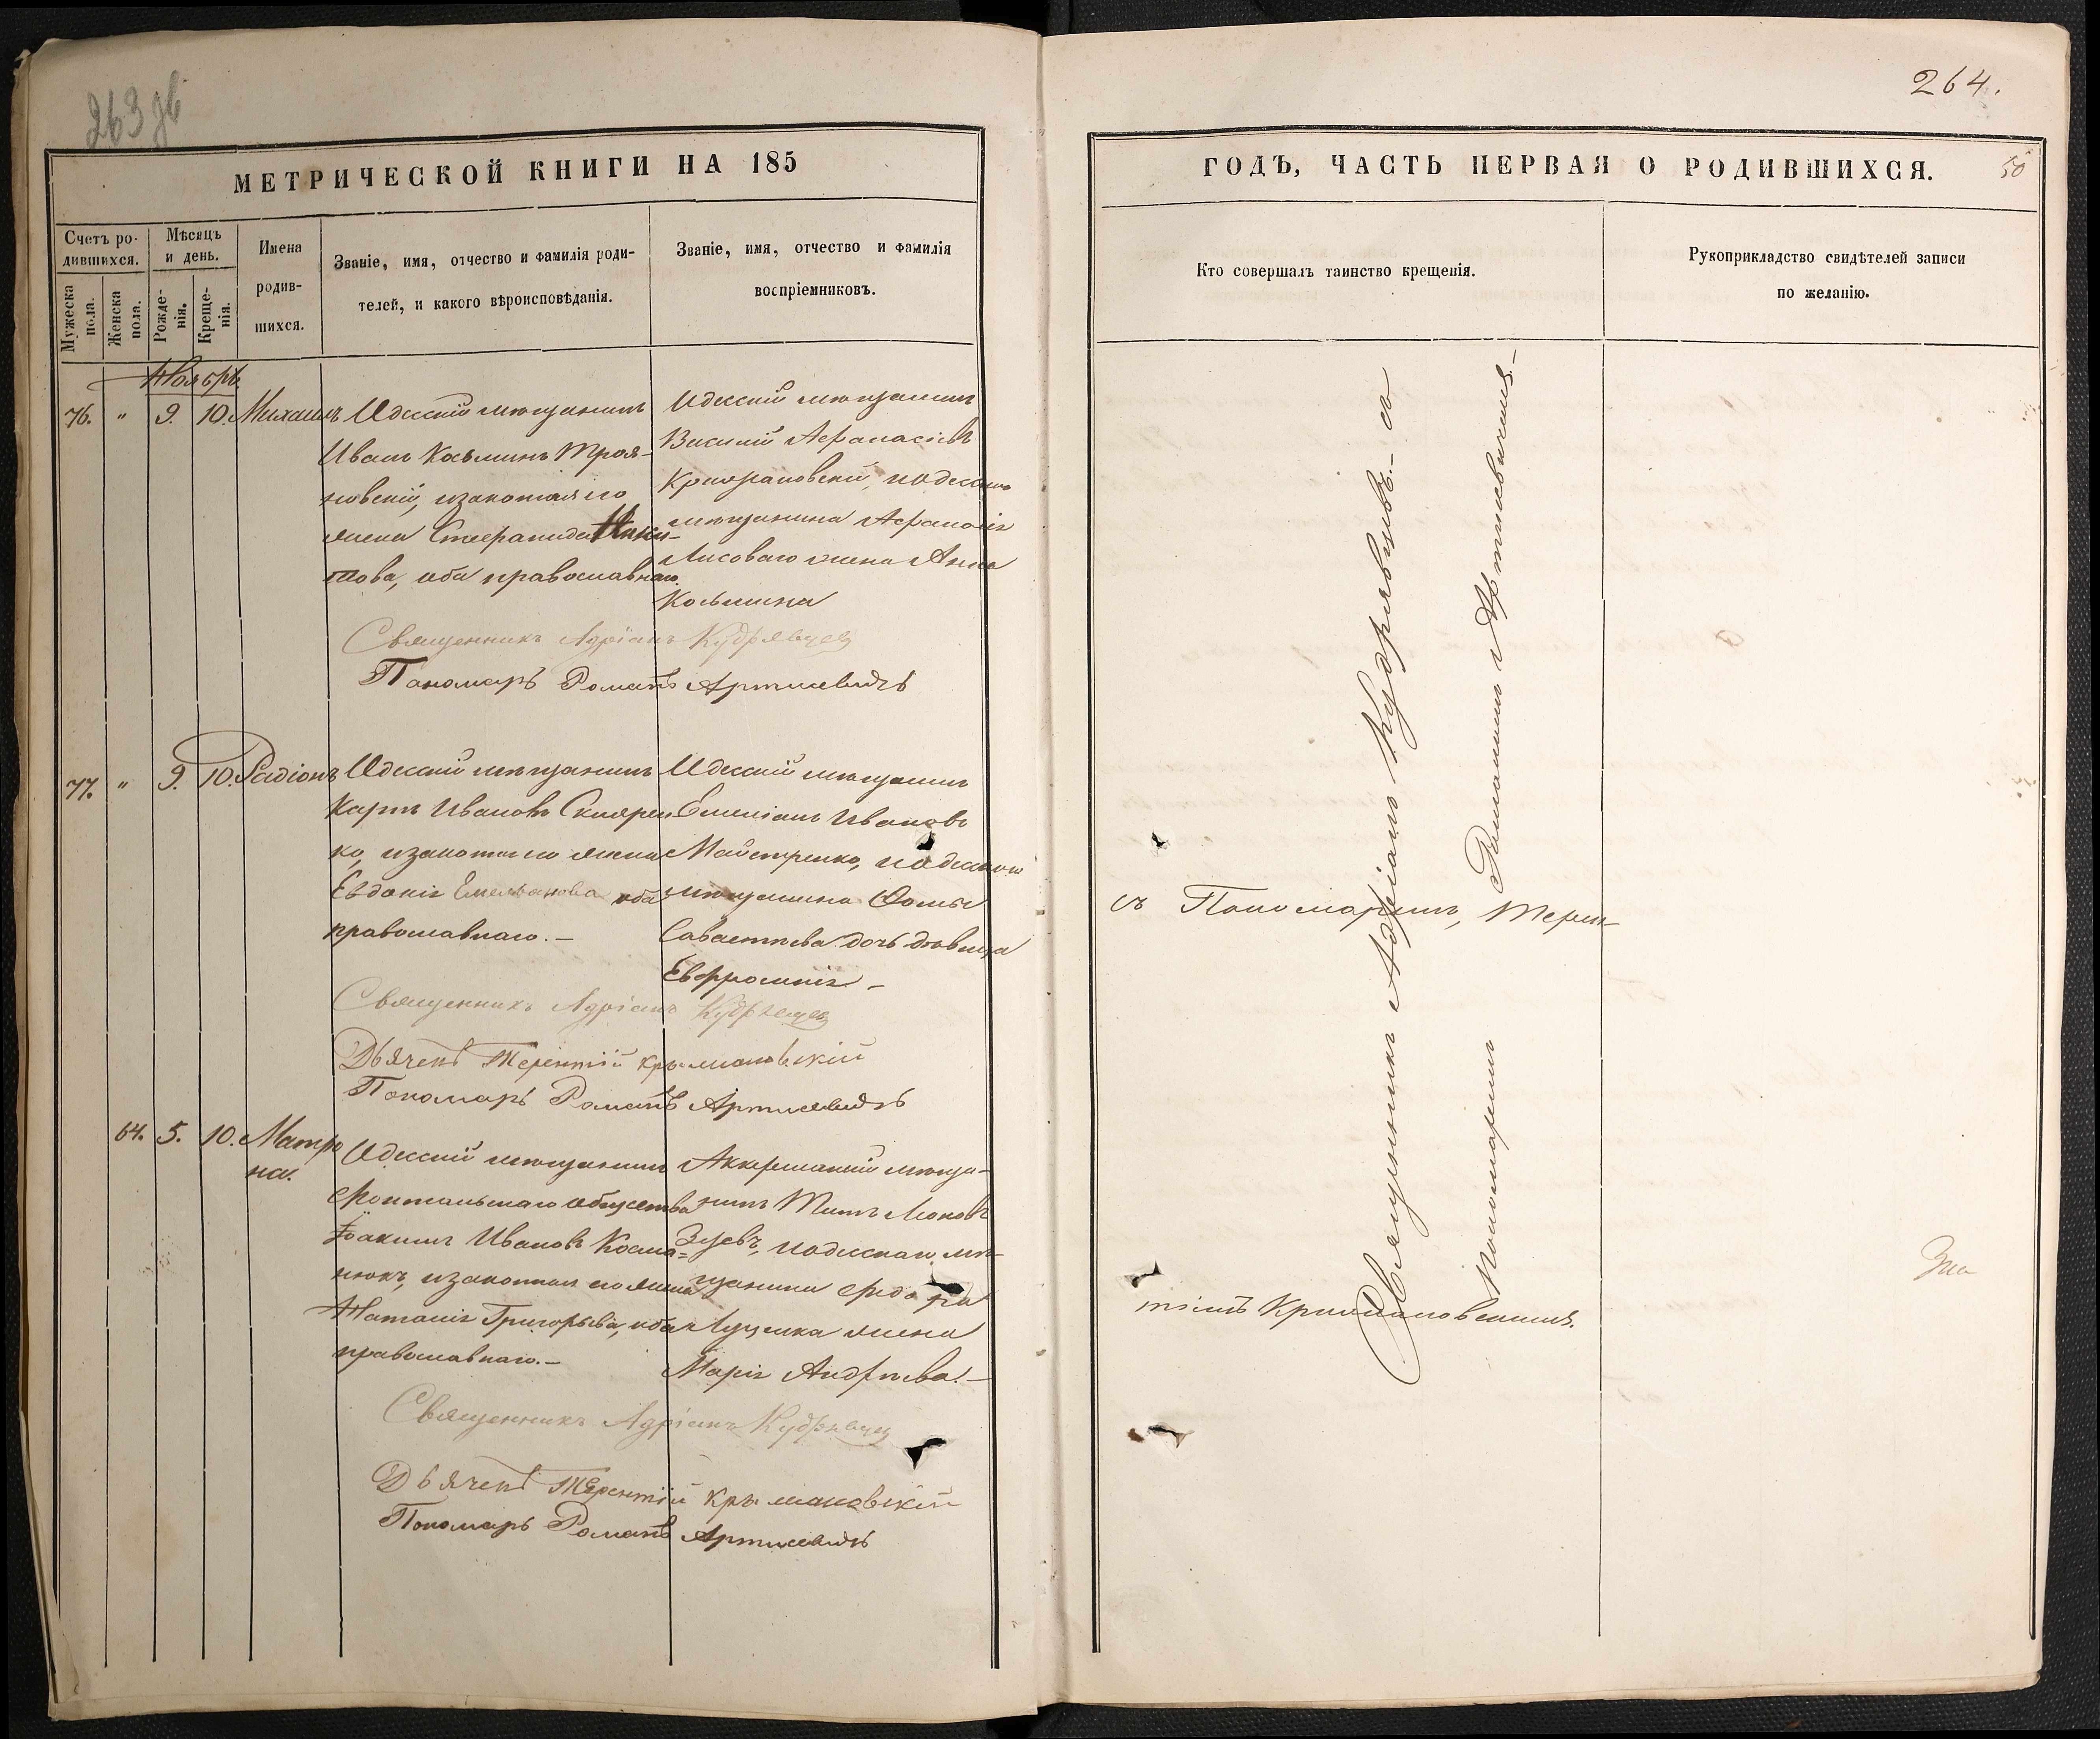 263 зв
МЕТРИЧЕСКОЙ КНИГИ НА 185
Счетъ ро-
дившихся.
Мѣсяцъ
и день.
Имена
родив-
шихся.
Званіе, имя, отчество и фамилія роди-
телей, и какого вѣроисповѣданія.
Званіе, имя, отчество и фамилія
воспріемниковъ.
Мужеска
пола.
Женска
пола.
Рожде-
нія.
Креще-
нія.
Ноябрь
76. " 9. 10. Михаилъ
Одесскій мѣщанинъ
Иванъ Косминъ Троя-
новскій, изаконная его
жена Стефанида
това, оба православнаго.
Одесскій мѣщанинъ
Василій Афанасіевъ
иодесскаго
мѣщанина Афанасія
Лисоваго жена Анна
Косьмина
Священникъ Адріанъ Кудрявцевъ
Пономарь Романъ Артисевичъ
77. " 9. 10. Радіонъ
Одесскій мѣщанинъ
Карпъ Ивановъ Склярен
ко, изаконная его жена
Евдокія Емельянова оба
православнаго. —
Одесскій мѣщанинъ
Емиліанъ Ивановъ
Майстренко, иодесскаго
мѣщанина Ѳомы
Саватѣева дочь дѣвица
Евфросинія —
Священникъ Адріанъ Кудрявцевъ
Дьячекъ Терентій Крыжановскій
Пономарь Романъ Артисевичъ
64. 5. 10. Матро
на.
Одесскій мѣщанинъ
Фонтальнаго общества
Іоакимъ Ивановъ Косма=
нюкъ, изаконная его жена
Наталія Григорьева, оба
православнаго. —
Аккерманскій мѣща-
нинъ Титъ Леоновъ
Зуевъ, иодесскаго мѣ-
щанина Федора
Луценка жена
Марія Андрѣева. —
Священникъ Адріанъ Кудрявцевъ
Дьячекъ Терентій Крыжановскій
Пономарь Романъ Артисевичъ
264.
ГОДЪ, ЧАСТЬ ПЕРВАЯ О РОДИВШИХСЯ.
50
Кто совершалъ таинство крещенія.
Рукоприкладство свидѣтелей записи
по желанію.
Священникъ Адріанъ Кудрявцевъ. — съ
Пономаремъ Романомъ Артисевичемъ. —
съ Пономаремъ, Терен-
тіемъ Крыжановскимъ.